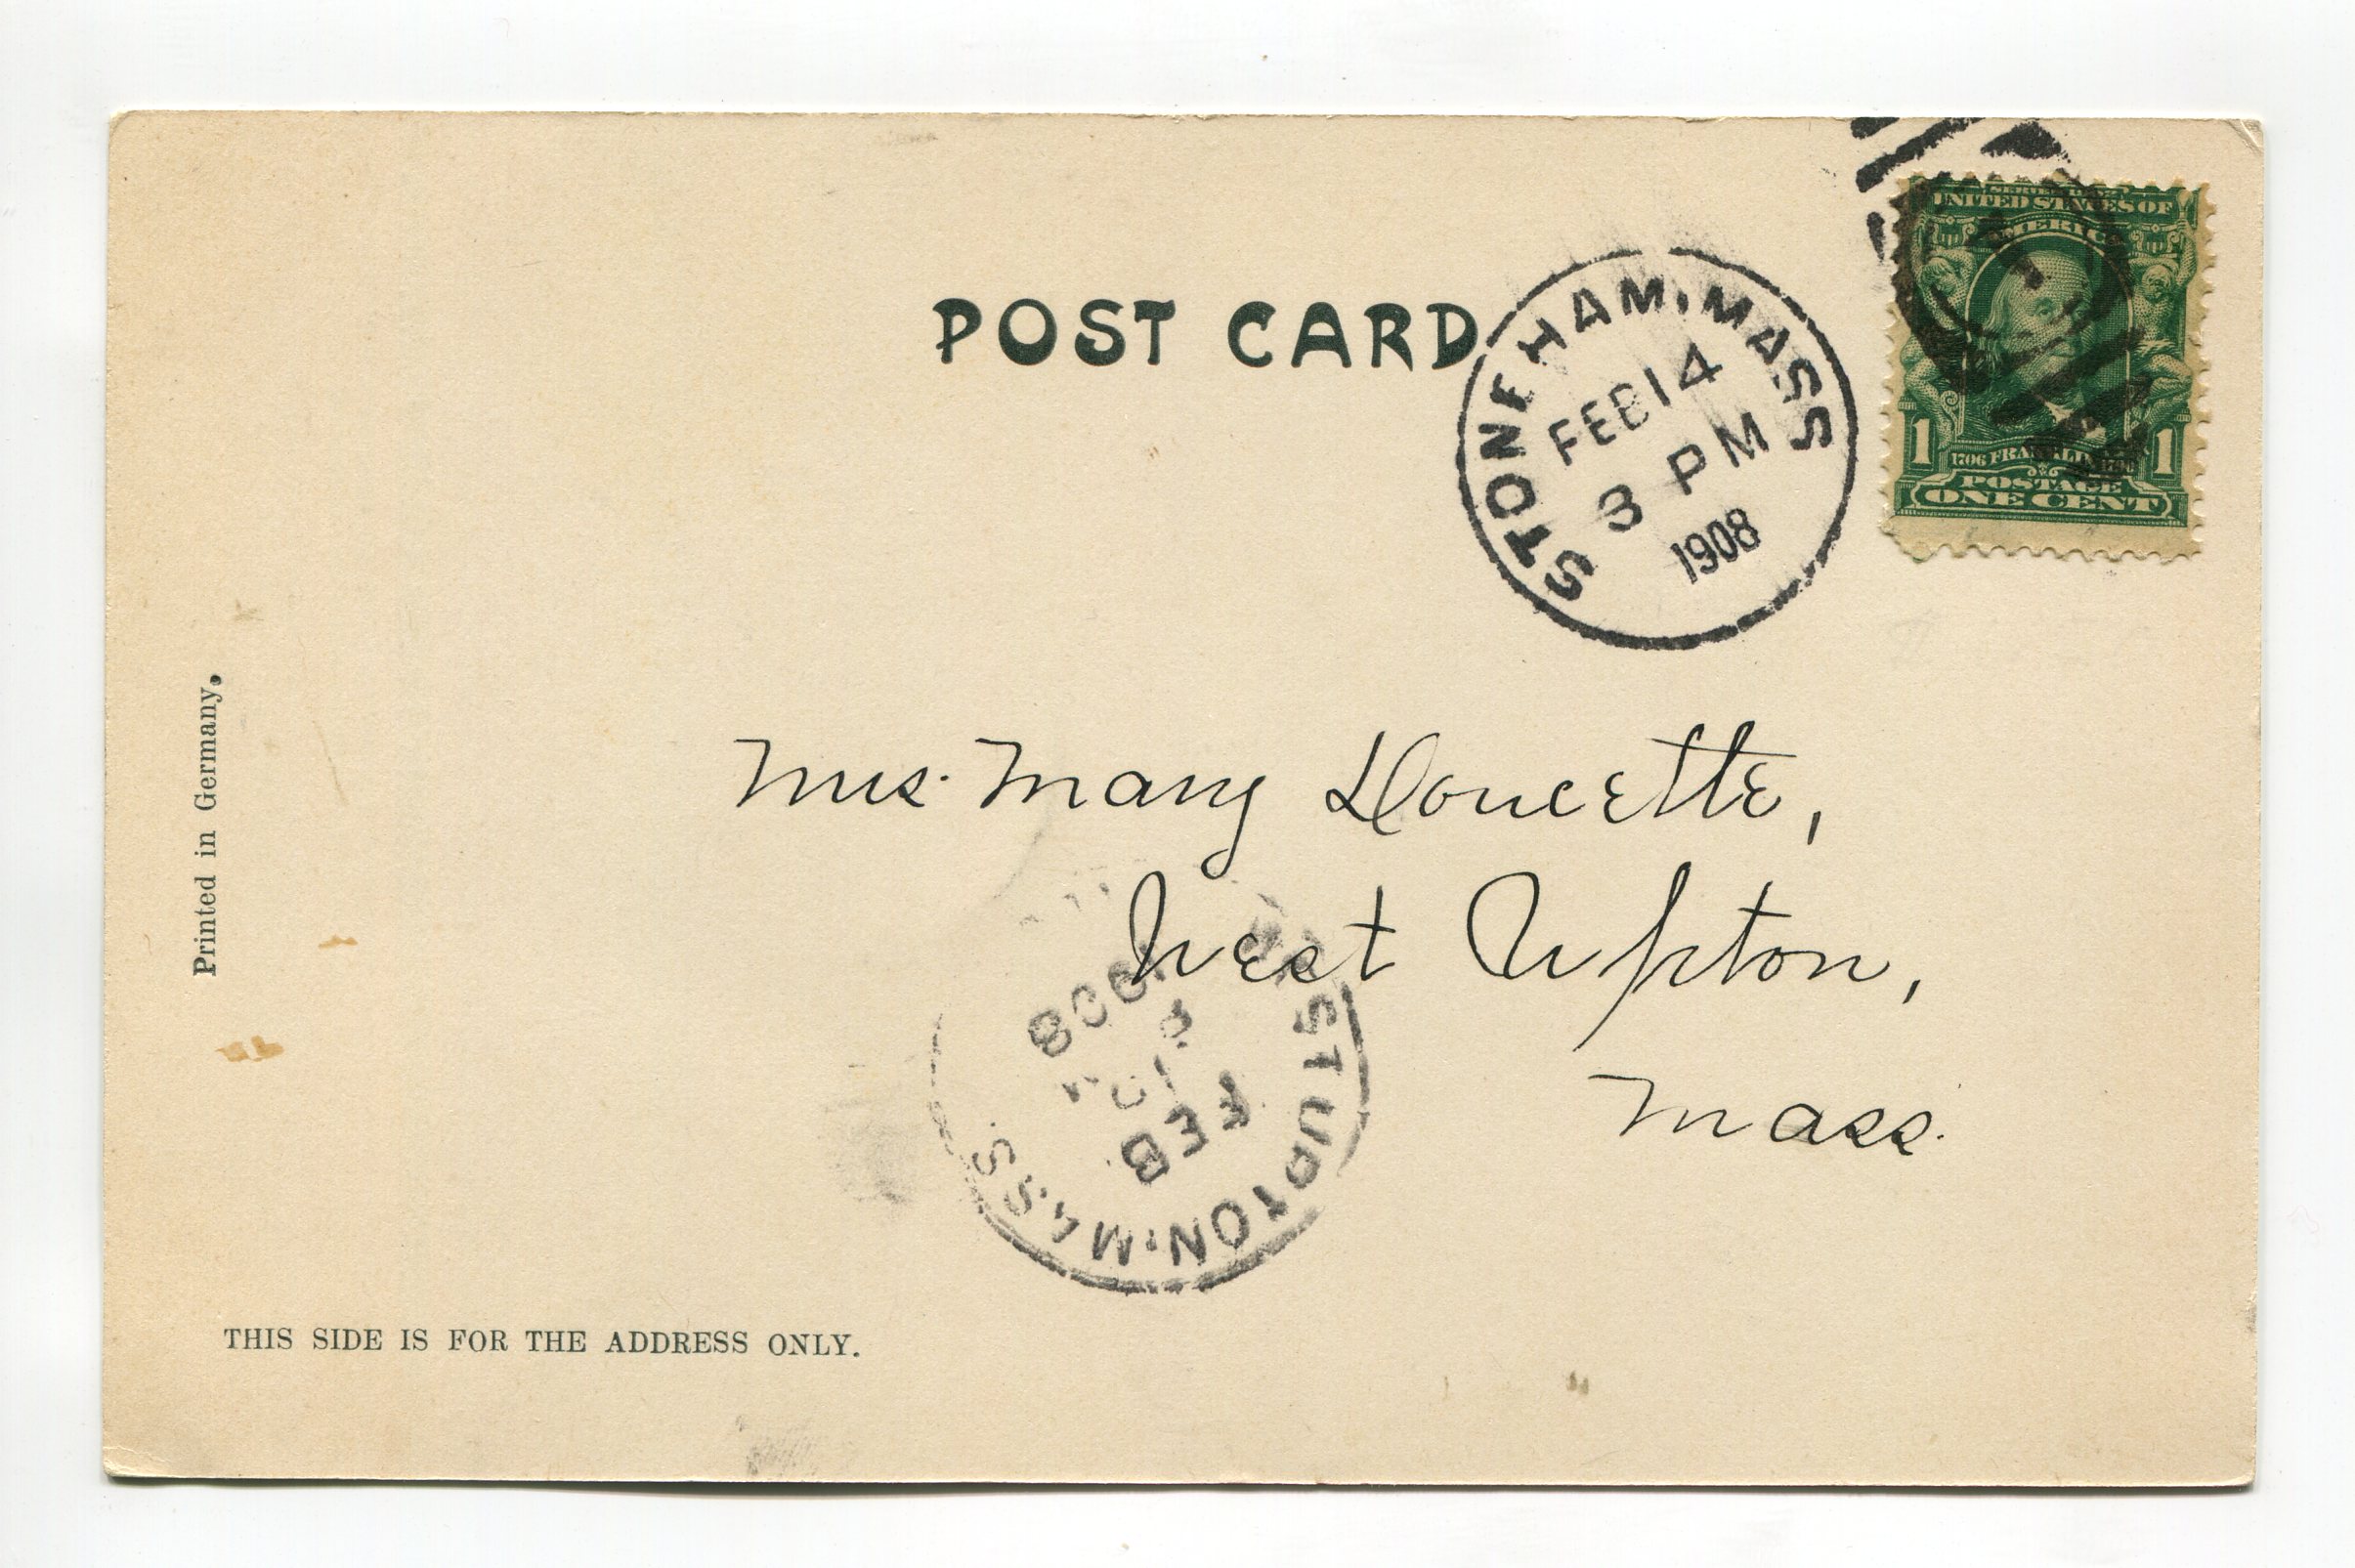 POST CARD
STONEHAM, MASS
FEB 14
3 PM
1908
SERIES 1902
UNITED STATES OF
AMERICA
1 1
1706 FRANKLIN 1790
POSTAGE
ONE CENT
Mrs. Mary Doucette,
West Upton,
Mass.
WEST UPTON, MASS.
FEB
1908
Printed in Germany.
THIS SIDE IS FOR THE ADDRESS ONLY.